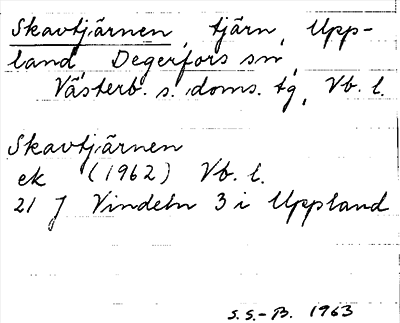 Skavtjärnen, tjärn, Upp-
land, Degerfors sn,
Västerb. s. doms. tg, Vb. l.
Skavtjärnen
ek (1962) Vb. l.
21 J Vindeln 3 i Uppland
S.S.-B. 1963